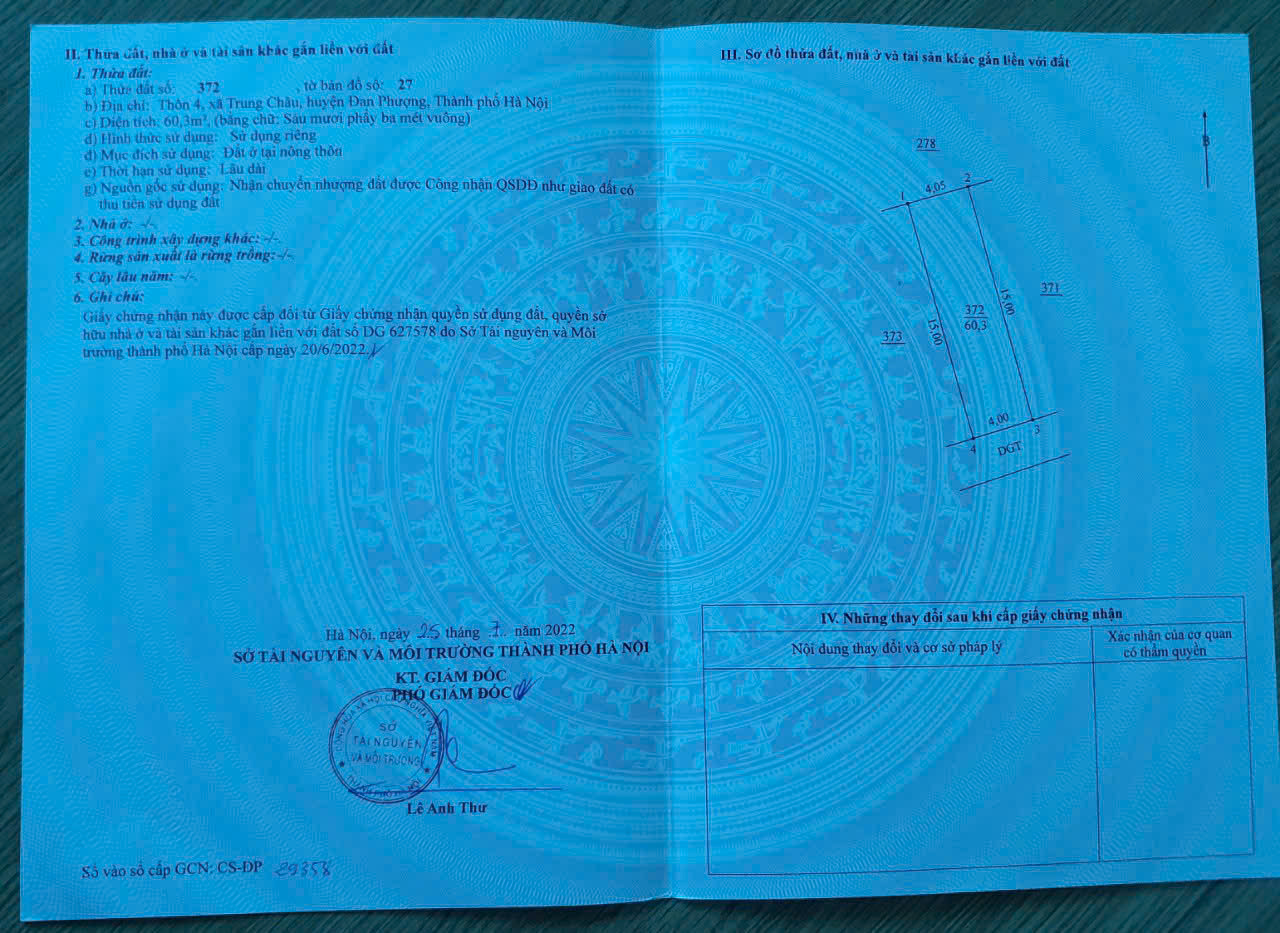 II. Thửa đất, nhà ở và tài sản khác gắn liền với đất
1. Thửa đất:
a) Thửa đất số: 372 , tờ bản đồ số: 27
b) Địa chỉ: Thôn 4, xã Trung Châu, huyện Đan Phượng, Thành phố Hà Nội
c) Diện tích: 60,3m², (bằng chữ: Sáu mươi phẩy ba mét vuông)
d) Hình thức sử dụng: Sử dụng riêng
đ) Mục đích sử dụng: Đất ở tại nông thôn
e) Thời hạn sử dụng: Lâu dài
g) Nguồn gốc sử dụng: Nhận chuyển nhượng đất được Công nhận QSDĐ như giao đất có
thu tiền sử dụng đất
2. Nhà ở: -/-.
3. Công trình xây dựng khác: -/-.
4. Rừng sản xuất là rừng trồng: -/-.
5. Cây lâu năm: -/-.
6. Ghi chú:
Giấy chứng nhận này được cấp đổi từ Giấy chứng nhận quyền sử dụng đất, quyền sở
hữu nhà ở và tài sản khác gắn liền với đất số DG 627578 do Sở Tài nguyên và Môi
trường thành phố Hà Nội cấp ngày 20/6/2022.
Hà Nội, ngày 25 tháng 7 năm 2022
SỞ TÀI NGUYÊN VÀ MÔI TRƯỜNG THÀNH PHỐ HÀ NỘI
KT. GIÁM ĐỐC
PHÓ GIÁM ĐỐC
CỘNG HÒA XÃ HỘI CHỦ NGHĨA VIỆT NAM
SỞ
TÀI NGUYÊN
VÀ MÔI TRƯỜNG
THÀNH PHỐ HÀ NỘI
Lê Anh Thư
Số vào sổ cấp GCN: CS-ĐP 29358
III. Sơ đồ thửa đất, nhà ở và tài sản khác gắn liền với đất
B
278
1
4,05
2
371
15,00
372
60,3
15,00
373
4,00
3
4
DGT
IV. Những thay đổi sau khi cấp giấy chứng nhận
Nội dung thay đổi và cơ sở pháp lý
Xác nhận của cơ quan
có thẩm quyền